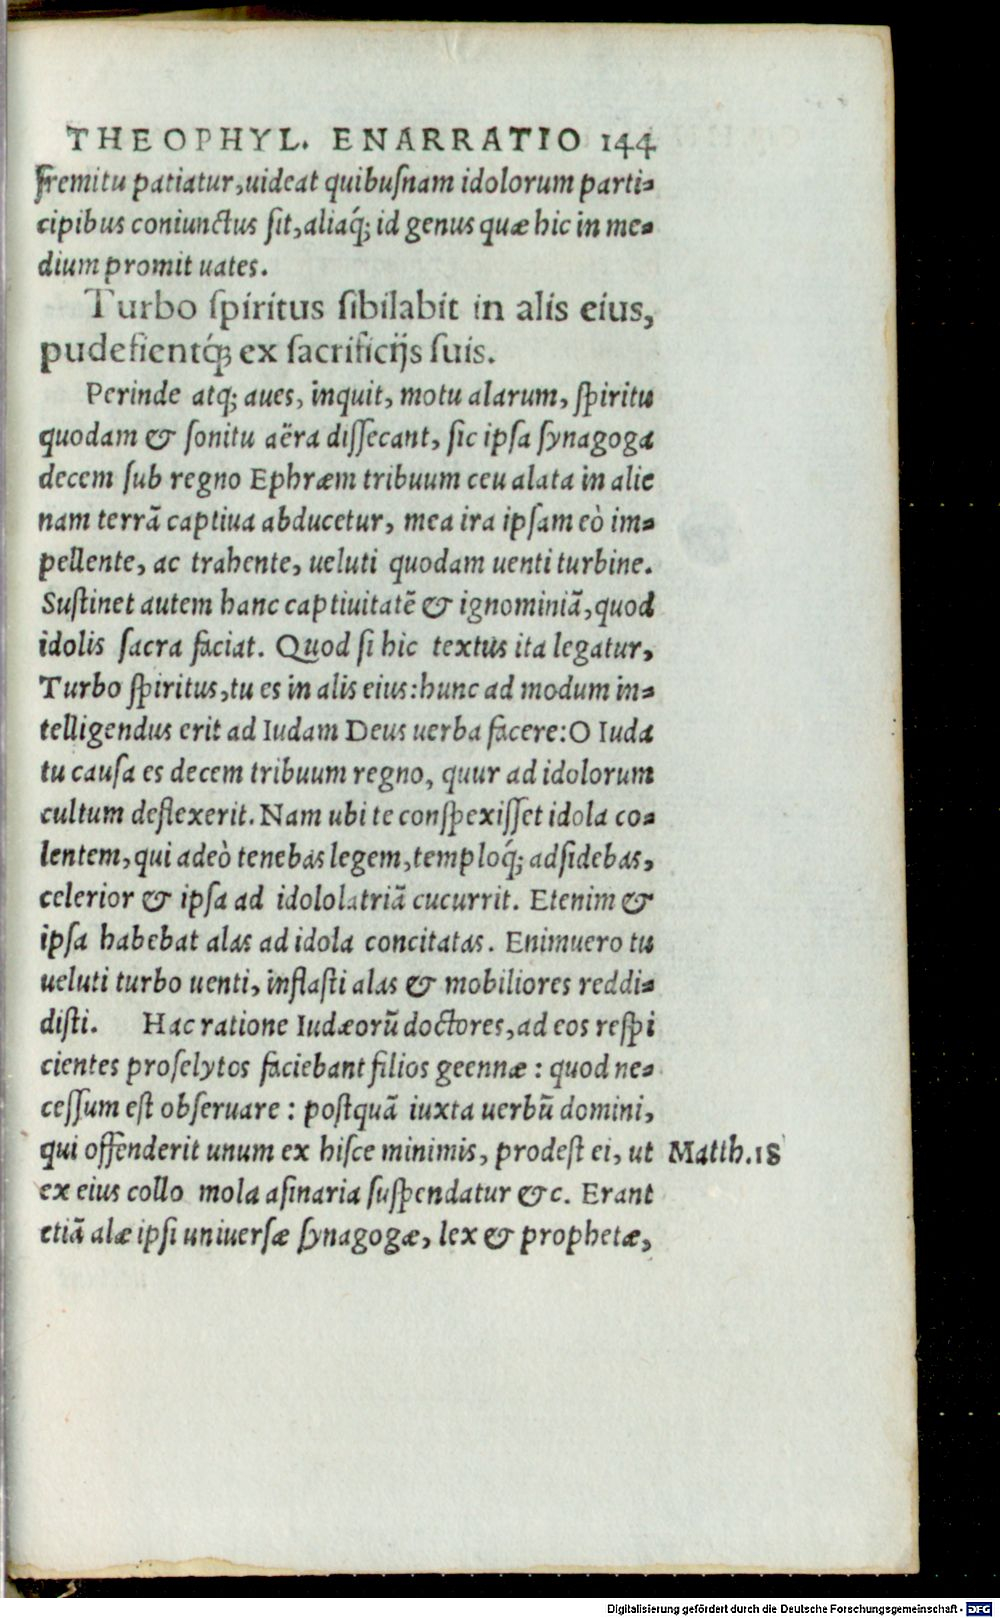 THEOPHYL. ENARRATIO 144
fremitu patiatur, uideat quibuſnam idolorum parti-
cipibus coniunctus ſit, aliaq́; id genus quæ hic in me-
dium promit uates.
Turbo ſpiritus ſibilabit in alis eius,
pudefientq́; ex ſacrificijs ſuis.
Perinde atq; aues, inquit, motu alarum, ſpiritu
quodam & ſonitu aëra diſſecant, ſic ipſa ſynagoga
decem ſub regno Ephræm tribuum ceu alata in alie
nam terrã captiua abducetur, mea ira ipſam eò im-
pellente, ac trahente, ueluti quodam uenti turbine.
Suſtinet autem hanc captiuitatẽ & ignominiã, quod
idolis ſacra faciat. Quod ſi hic textus ita legatur,
Turbo ſpiritus, tu es in alis eius: hunc ad modum in-
telligendus erit ad Iudam Deus uerba facere: O Iuda
tu cauſa es decem tribuum regno, quur ad idolorum
cultum deflexerit. Nam ubi te conſpexiſſet idola co-
lentem, qui adeò tenebas legem, temploq́; adſidebas,
celerior & ipſa ad idololatriã cucurrit. Etenim &
ipſa habebat alas ad idola concitatas. Enimuero tu
ueluti turbo uenti, inflaſti alas & mobiliores reddi-
diſti. Hac ratione Iudæorũ doctores, ad eos reſpi
cientes proſelytos faciebant filios geennæ: quod ne-
ceſſum eſt obſeruare: poſtquã iuxta uerbũ domini,
qui offenderit unum ex hiſce minimis, prodeſt ei, ut Matth.18
ex eius collo mola aſinaria ſuſpendatur &c. Erant
etiã alæ ipſi uniuerſæ ſynagogæ, lex & prophetæ,
Digitalisierung gefördert durch die Deutsche Forschungsgemeinschaft - DFG